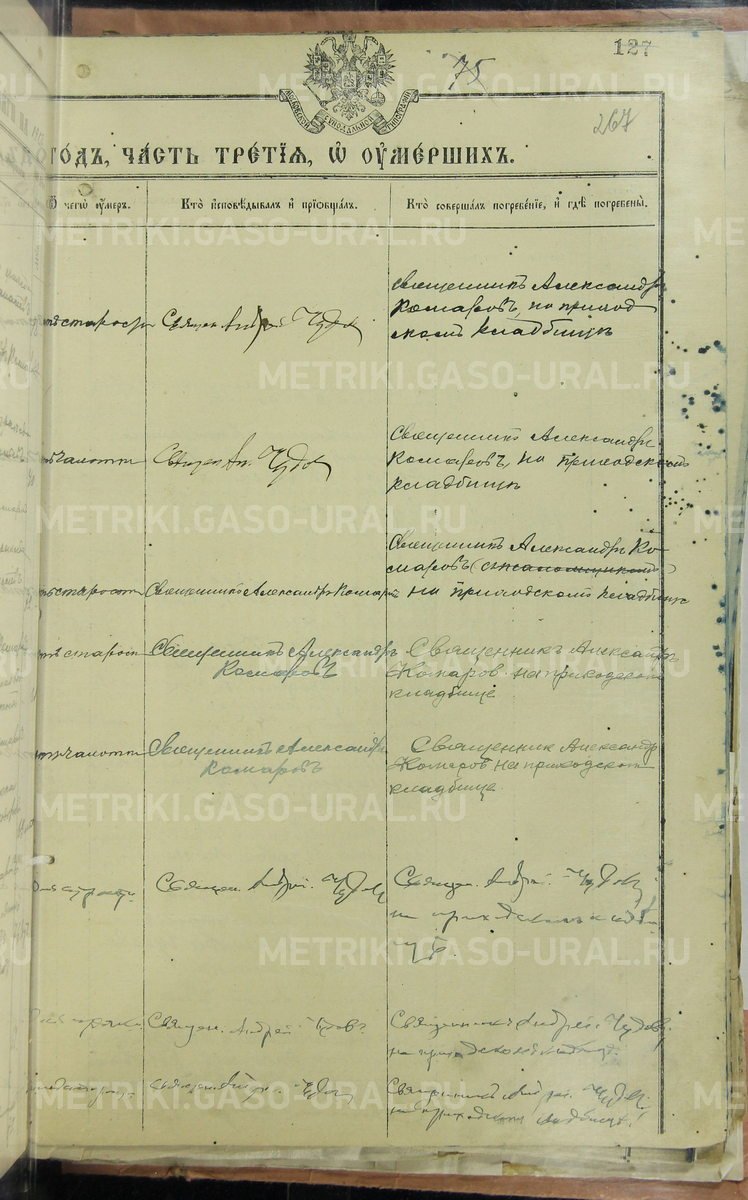 127
75
267
МОСКОВСКОЙ СУНОДАЛЬНОЙ ТИПОГРАФІИ
ГОДЪ, ЧАСТЬ ТРЕТІЯ, Ѡ ОУМЕРШИХЪ.
Ѿ чегѡ оумеръ.
Кто исповѣдывалъ и пріобщалъ.
Кто совершалъ погребеніе, и гдѣ погребены.
старости
Священ. Андрей Чудов
Священникъ Александръ
Комаровъ, на приход
скомъ кладбищѣ
чахотки
Священ Ан. Чудов
Священникъ Александръ
Комаровъ, на приходскомъ
кладбищѣ
старости
Священникъ Александръ Комаровъ
Священникъ Александръ Ко-
маровъ
на приходскомъ кладбищѣ
старости
Священникъ Александръ
Комаровъ
Священникъ Александръ
Комаров на приходском
кладбище
чахотки
Священникъ Александръ
Комаровъ
Священник Александр
Комаров на приходском
кладбище
Священ. Андрей Чудов
Священ. Андрей Чудов
на приходскомъ
Священ. Андрей Чудов
Священникъ Андрей Чудов
на приходскомъ
Священ Андр. Чудов
Священникъ Андрей Чудов
на приходском кладбищѣ
METRIKI.GASO-URAL.RU